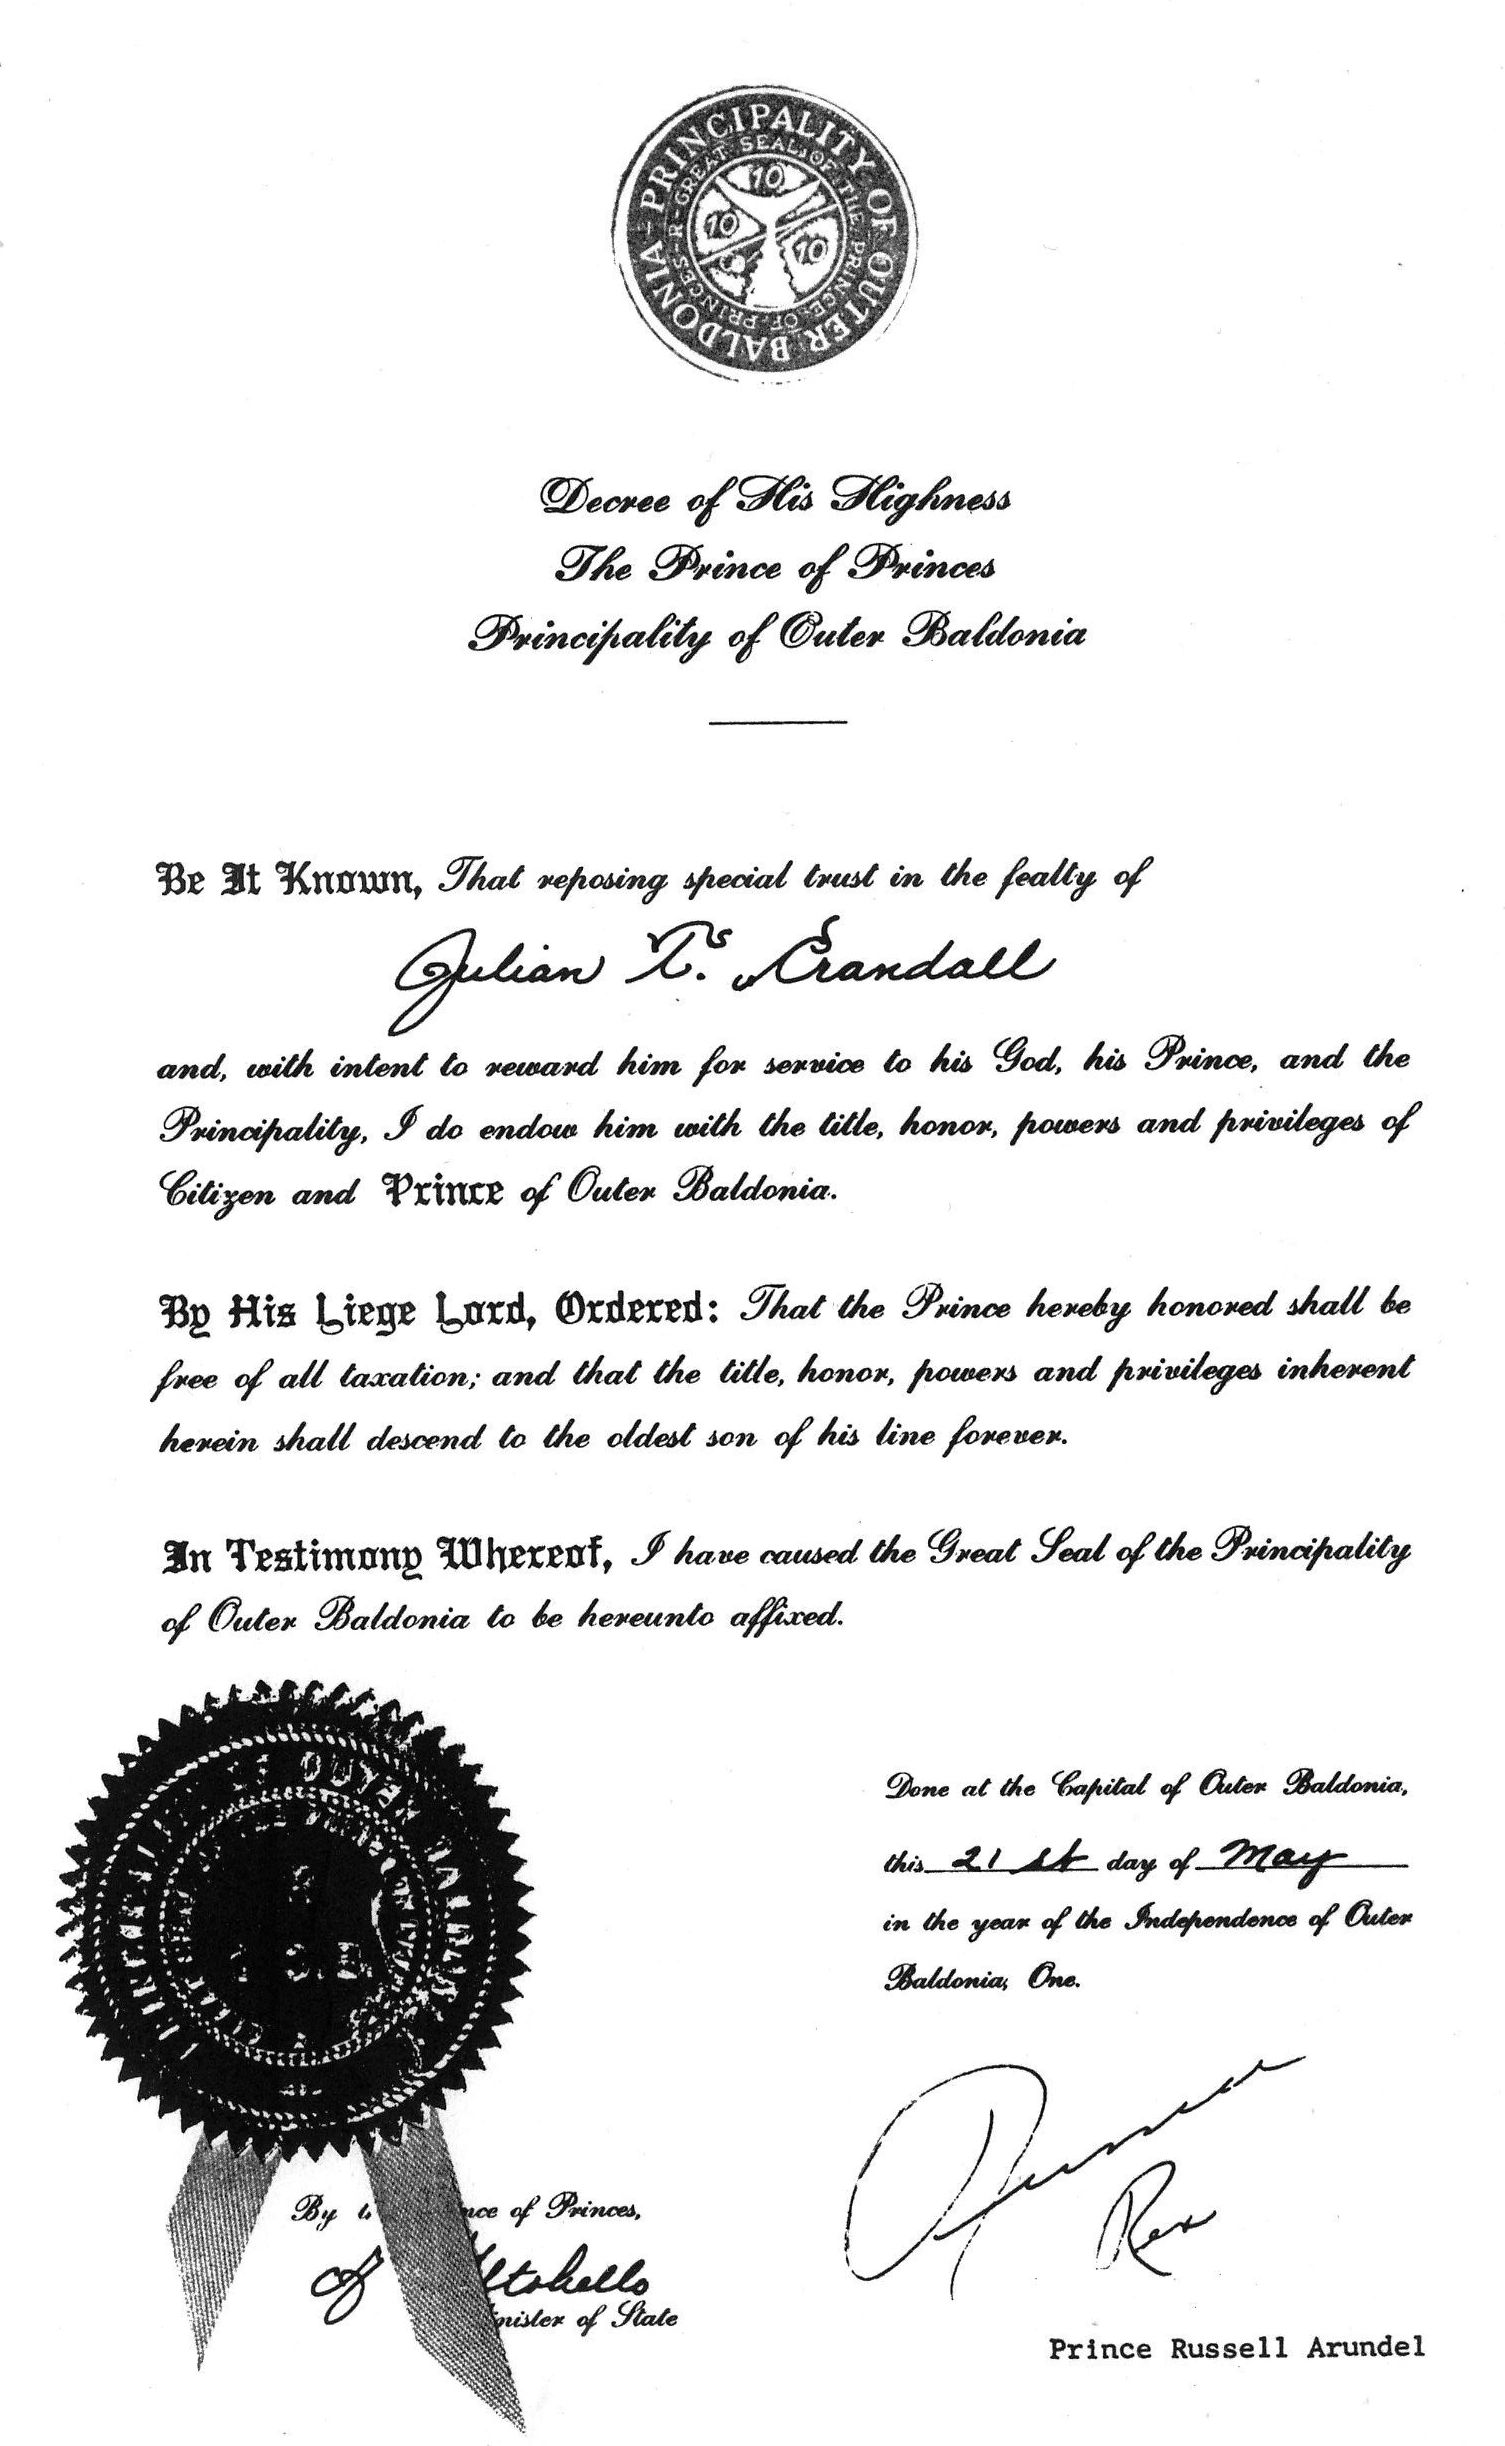 PRINCIPALITY OF OUTER BALDONIA
GREAT SEAL OF THE PRINCE OF PRINCES
10
10
10
Decree of His Highness
The Prince of Princes
Principality of Outer Baldonia
Be It Known, That reposing special trust in the fealty of
Julian T. Crandall
and, with intent to reward him for service to his God, his Prince, and the
Principality, I do endow him with the title, honor, powers and privileges of
Citizen and Prince of Outer Baldonia.
By His Liege Lord, Ordered: That the Prince hereby honored shall be
free of all taxation; and that the title, honor, powers and privileges inherent
herein shall descend to the oldest son of his line forever.
In Testimony Whereof, I have caused the Great Seal of the Principality
of Outer Baldonia to be hereunto affixed.
Done at the Capital of Outer Baldonia,
this 21st day of May
in the year of the Independence of Outer
Baldonia, One.
Rex
By of Princes,
of State
Prince Russell Arundel